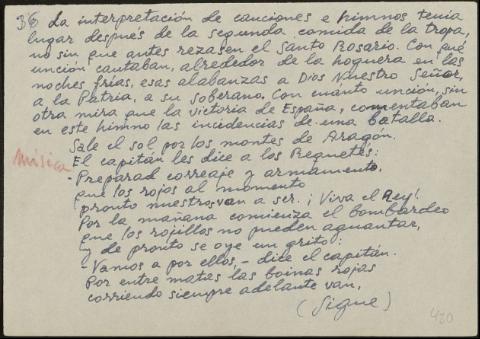 36 La interpretación de canciones e himnos tenía
lugar después de la segunda comida de la tropa,
no sin que antes rezasen el Santo Rosario. Con qué
unción cantaban, alrededor de la hoguera en las
noches frías, esas alabanzas a Dios Nuestro Señor,
a la Patria, a su Soberano. Con cuánto unción, sin
otra mira que la victoria de España, comentaban
en este himno las incidencias de una batalla.
Sale el sol por los montes de Aragón.
Música
El capitán les dice a los Requetés:
- Preparad correaje y armamento,
que los rojos al momento
pronto nuestros van a ser. ¡Viva el Rey!
Por la mañana comienza el bombardeo
que los rojillos no pueden aguantar,
y de pronto se oye un grito:
- Vamos a por ellos, - dice el capitán.
Por entre matas las boinas rojas
corriendo siempre adelante van,
(Sigue)
420